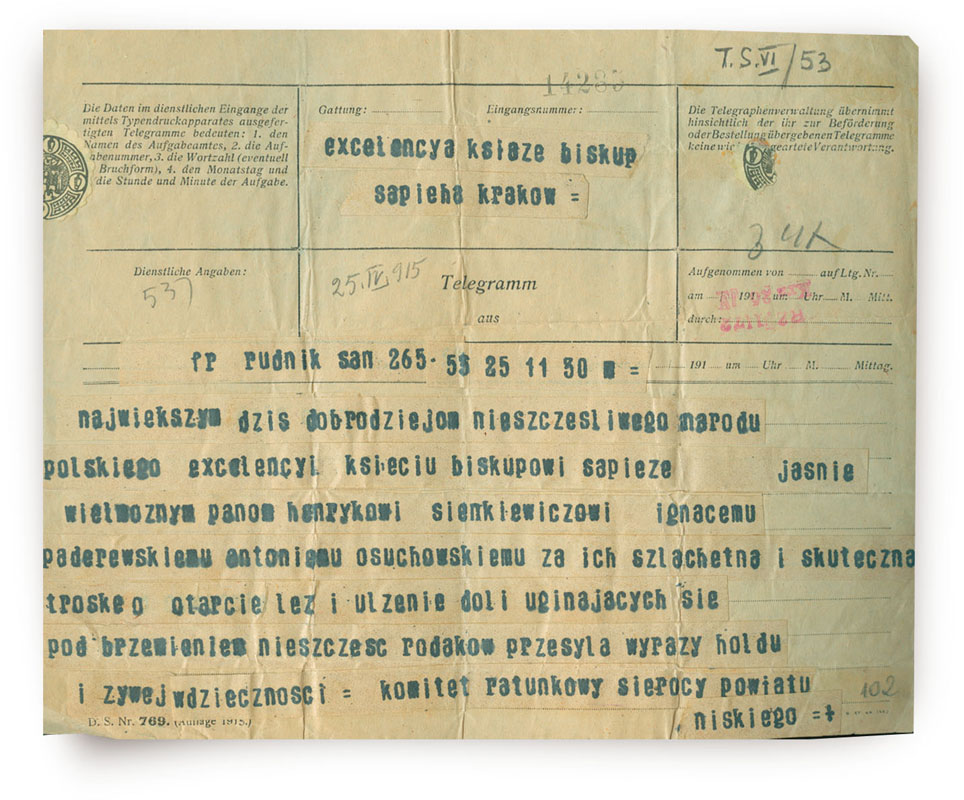 T. S. VI/53
14283
Die Daten im dienstlichen Eingange der
mittels Typendruckapparates ausgefer-
tigten Telegramme bedeuten: 1. den
Namen des Aufgabeamtes, 2. die Auf-
abenummer, 3. die Wortzahl (eventuell
Bruchform), 4. den Monatstag und
die Stunde und Minute der Aufgabe.
Gattung: Eingangsnummer:
excelencya ksiaze biskup
sapieha krakow =
Die Telegraphenverwaltung übernimmt
hinsichtlich der ihr zur Beförderung
oder Bestellung übergebenen Telegramme
keine wie geartete Verantwortung.
Dienstliche Angaben:
537
25.IV.915
Telegramm
aus
Aufgenommen von auf Ltg. Nr.
am 191 um Uhr M. Mitt.
durch:
fr rudnik san 265. 53 25 11 50 m =
191 um Uhr M. Mittag.
najwiekszym dzis dobrodziejom nieszczesliwego narodu
polskiego excelencyi ksieciu biskupowi sapieze jasnie
wielmoznym panom henrykowi sienkiewiczowi ignacemu
paderewskiemu antoniemu osuchowskiemu za ich szlachetna i skuteczna
troske o otarcie lez i ulzenie doli uginajacych sie
pod brzemieniem nieszczesc rodakow przesyla wyrazy holdu
i zywej wdziecznosci = komitet ratunkowy sierocy powiatu
niskiego =+
102
D. S. Nr. 769. (Auflage 1915.)